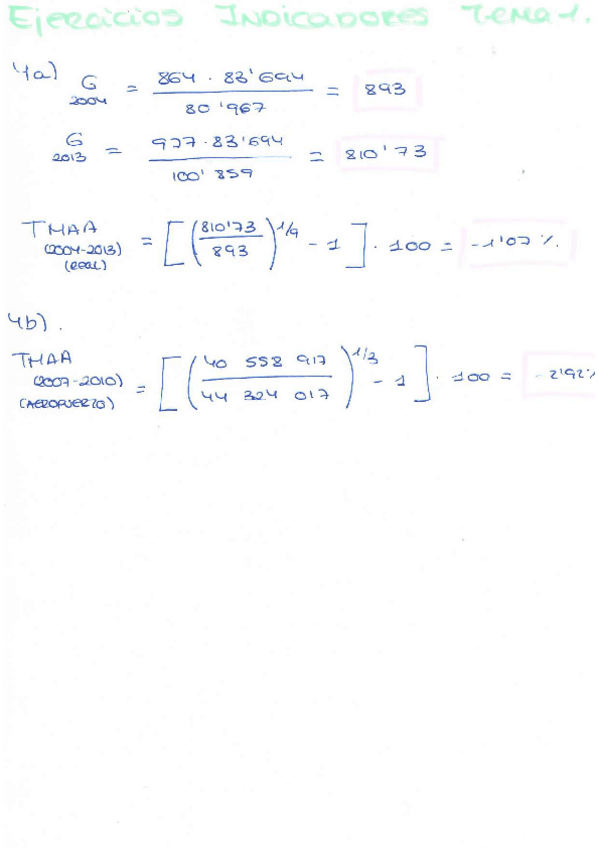 Ejercicios Indicadores Tema 1.
4a) G 2004 = 864 · 83'694 / 80'967 = 893
G 2013 = 977 · 83'694 / 100'859 = 810'73
TMAA (2004-2013) (REAL) = [ ( 810'73 / 893 )^1/9 - 1 ] · 100 = -1'07 %.
4b).
TMAA (2007-2010) (AEROPUERTO) = [ ( 40 558 917 / 44 324 017 )^1/3 - 1 ] · 100 = -2'92%